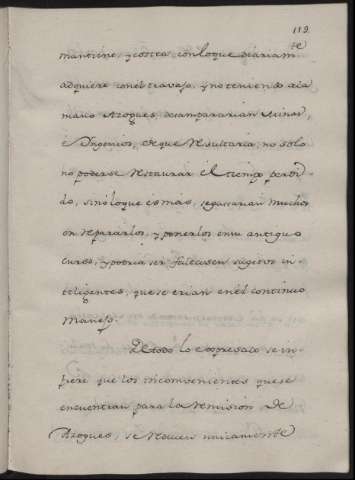 119.
mantiene, y costea, con loque diariamte
adquiere con el travajo, y no teniendo ala
mano Azogues, desampararian Minas,
é Yngenios, de que resultaria, no solo
no poderse restaurar él tiempo perdi-
do, sinó loque es mas, se gastarian muchos
en repararlos, y ponerlos en su antiguo
curso, y podria ser faltasen sugetos in-
teligentes, que se crian en él continuo
manejo.
De todo lo expresado se in-
fiere que los inconvenientes que se
encuentran para la Remision de
Azogues, se reducen unicamente